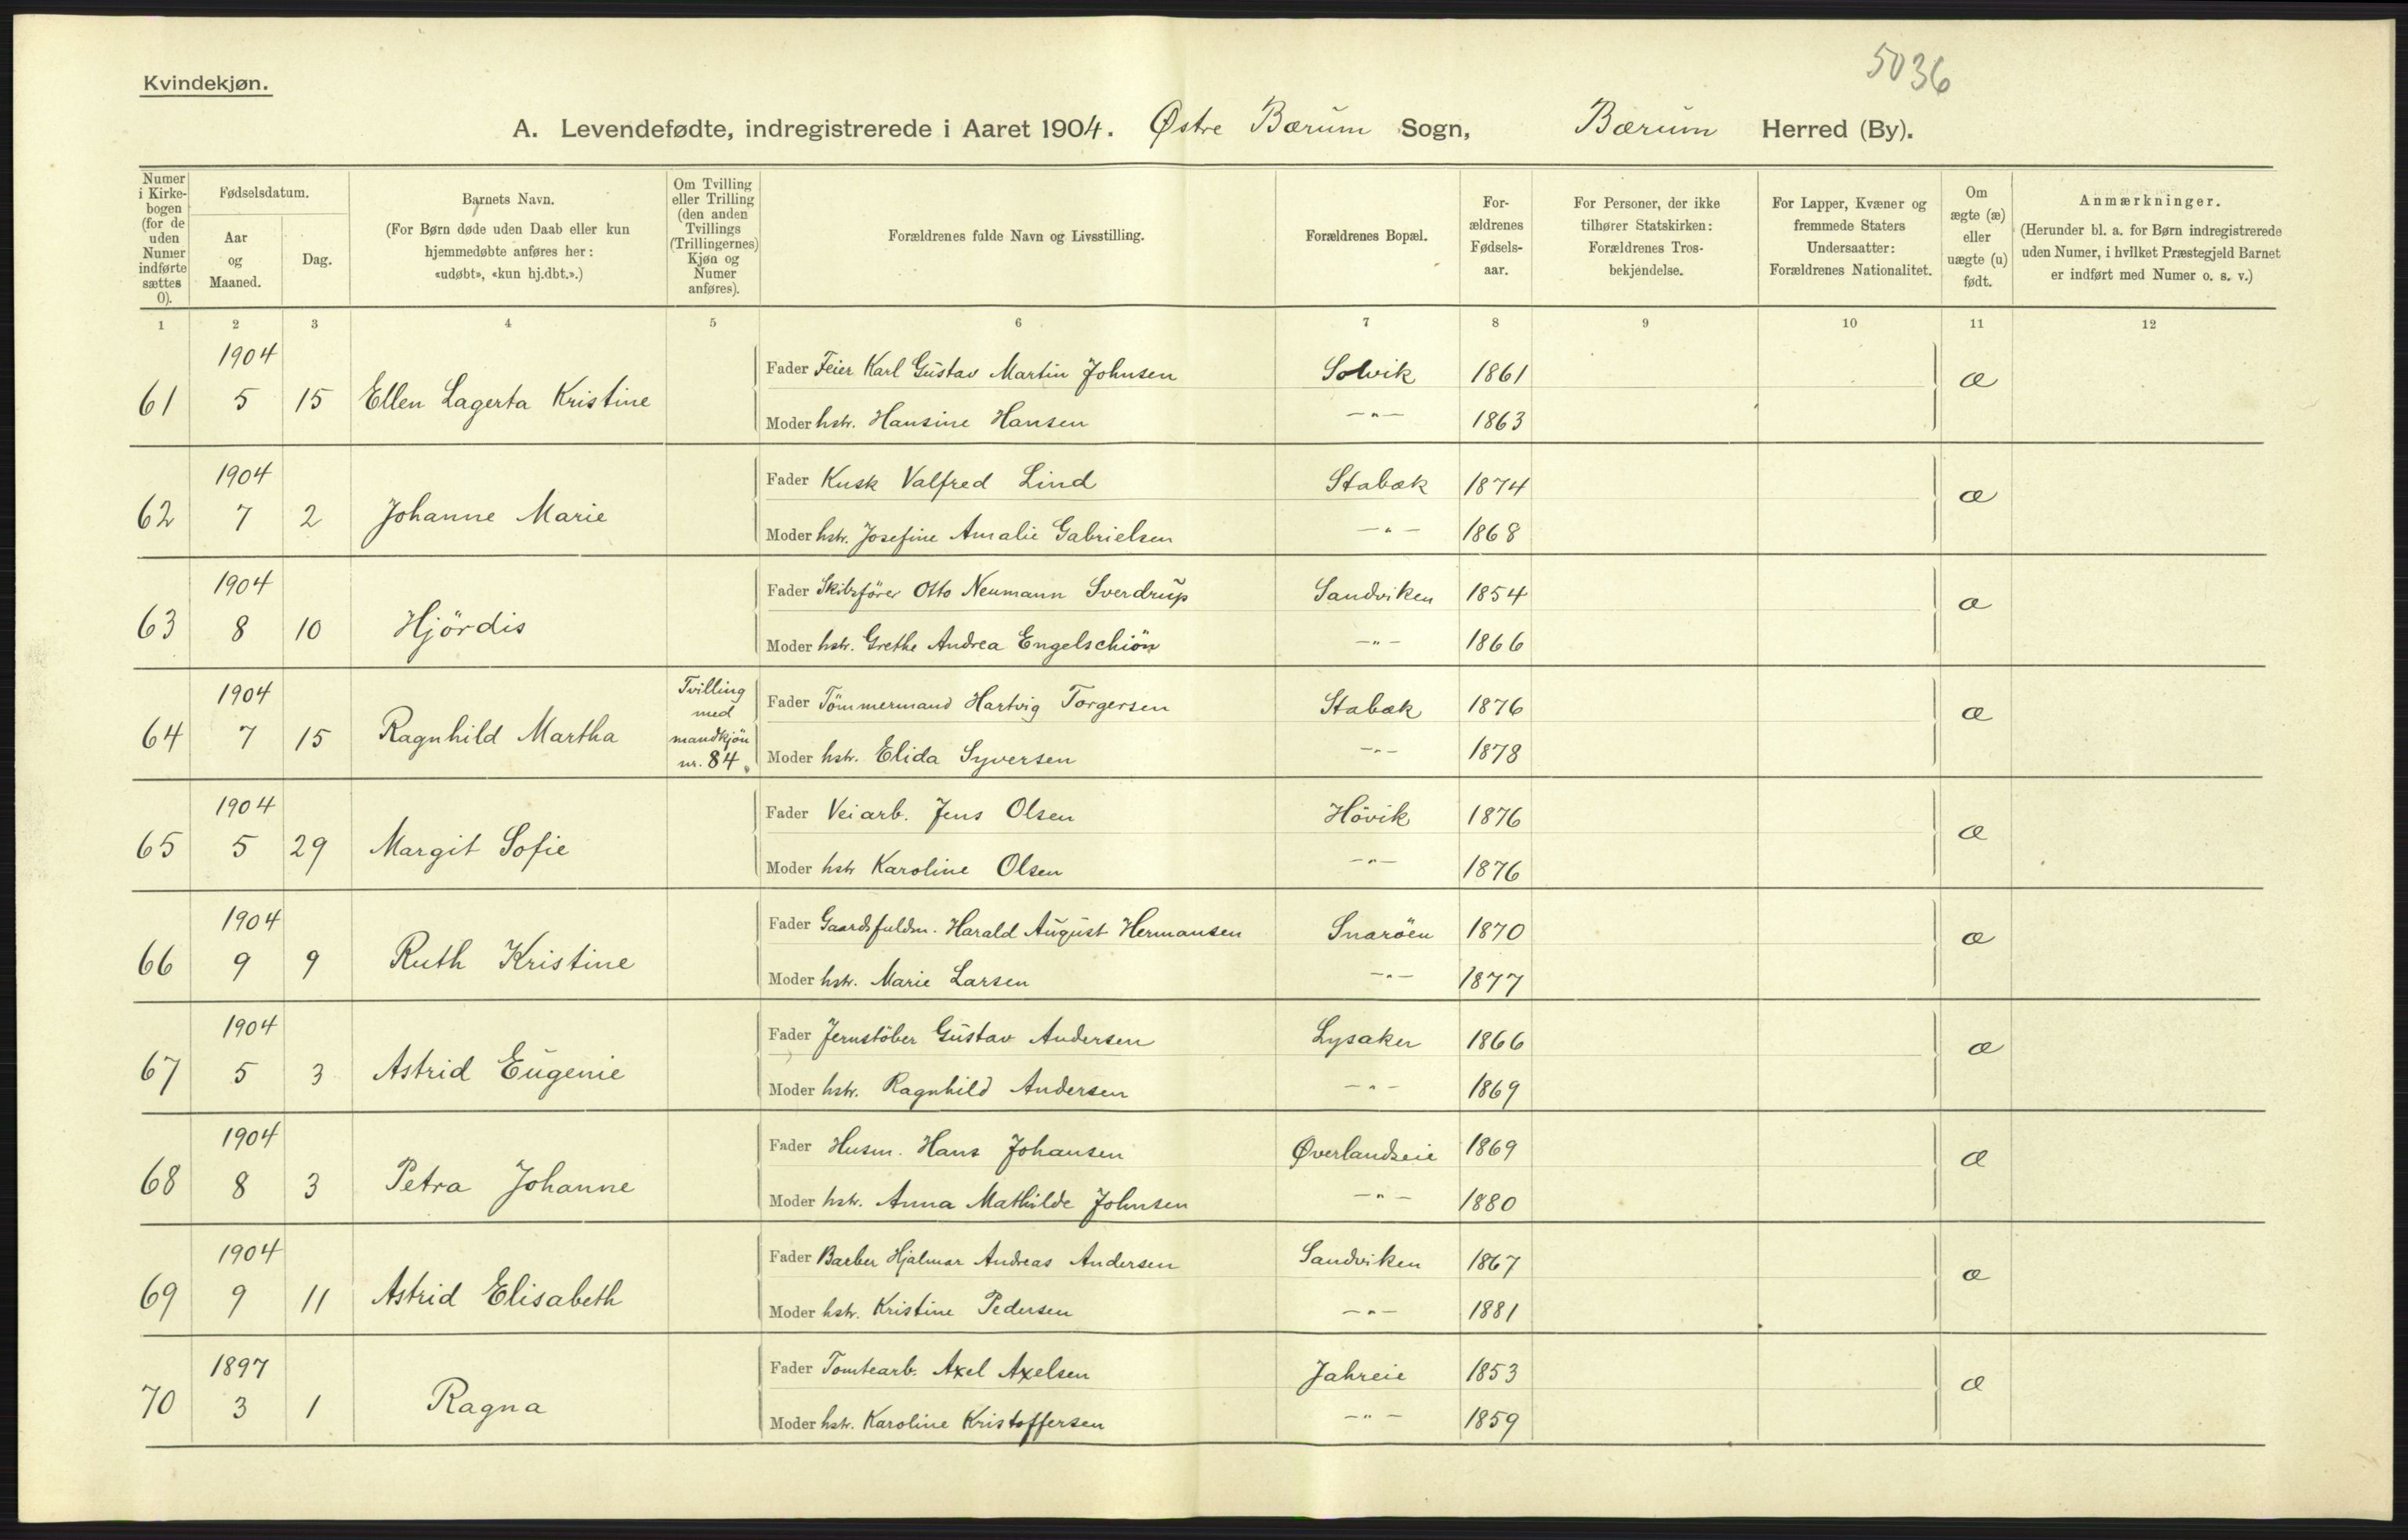 5036
Kvindekjøn.
A. Levendefødte, indregistrerede i Aaret 1904. Østre Bærum Sogn, Bærum Herred (By).
Numer i Kirkebogen (for de uden Numer indførte sættes 0).
Fødselsdatum.
Aar og Maaned.
Dag.
Barnets Navn.
(For Børn døde uden Daab eller kun hjemmedøbte anføres her: «udøbt», «kun hj.dbt.».)
Om Tvilling eller Trilling (den anden Tvillings (Trillingernes) Kjøn og Numer anføres).
Forældrenes fulde Navn og Livsstilling.
Forældrenes Bopæl.
Forældrenes Fødselsaar.
For Personer, der ikke tilhører Statskirken: Forældrenes Trosbekjendelse.
For Lapper, Kvæner og fremmede Staters Undersaatter: Forældrenes Nationalitet.
Om ægte (æ) eller uægte (u) født.
Anmærkninger.
(Herunder bl. a. for Børn indregistrerede uden Numer, i hvilket Præstegjeld Barnet er indført med Numer o. s. v.)
1 2 3 4 5 6 7 8 9 10 11 12
1904 Fader Feier Karl Gustav Martin Johnsen Solvik 1861 æ
61 5 15 Ellen Lagerta Kristine Moder hstr. Hansine Hansen —"— 1863
1904 Fader Kusk Valfred Lind Stabæk 1874 æ
62 7 2 Johanne Marie Moder hstr. Josefine Amalie Gabrielsen —"— 1868
1904 Fader Skibsfører Otto Neumann Sverdrup Sandviken 1854 æ
63 8 10 Hjördis Moder hstr. Grethe Andrea Engelschiön —"— 1866
1904 Tvilling med Fader Tömmermand Hartvig Torgersen Stabæk 1876 æ
64 7 15 Ragnhild Martha mandkjön nr. 84. Moder hstr. Elida Syversen —"— 1878
1904 Fader Veiarb. Jens Olsen Hövik 1876 æ
65 5 29 Margit Sofie Moder hstr Karoline Olsen —"— 1876
1904 Fader Gaardsfuldm. Harald August Hermansen Snaröen 1870 æ
66 9 9 Ruth Kristine Moder hstr. Marie Larsen —"— 1877
1904 Fader Jernstöber Gustav Andersen Lysaker 1866 æ
67 5 3 Astrid Eugenie Moder hstr. Ragnhild Andersen —"— 1869
1904 Fader Husm. Hans Johansen Øverlandseie 1869 æ
68 8 3 Petra Johanne Moder hstr. Anna Mathilde Johnsen —"— 1880
1904 Fader Barber Hjalmar Andreas Andersen Sandviken 1867 æ
69 9 11 Astrid Elisabeth Moder hstr. Kristine Pedersen —"— 1881
1897 Fader Tomtearb. Axel Axelsen Jahreie 1853 æ
70 3 1 Ragna Moder hstr. Karoline Kristoffersen —"— 1859